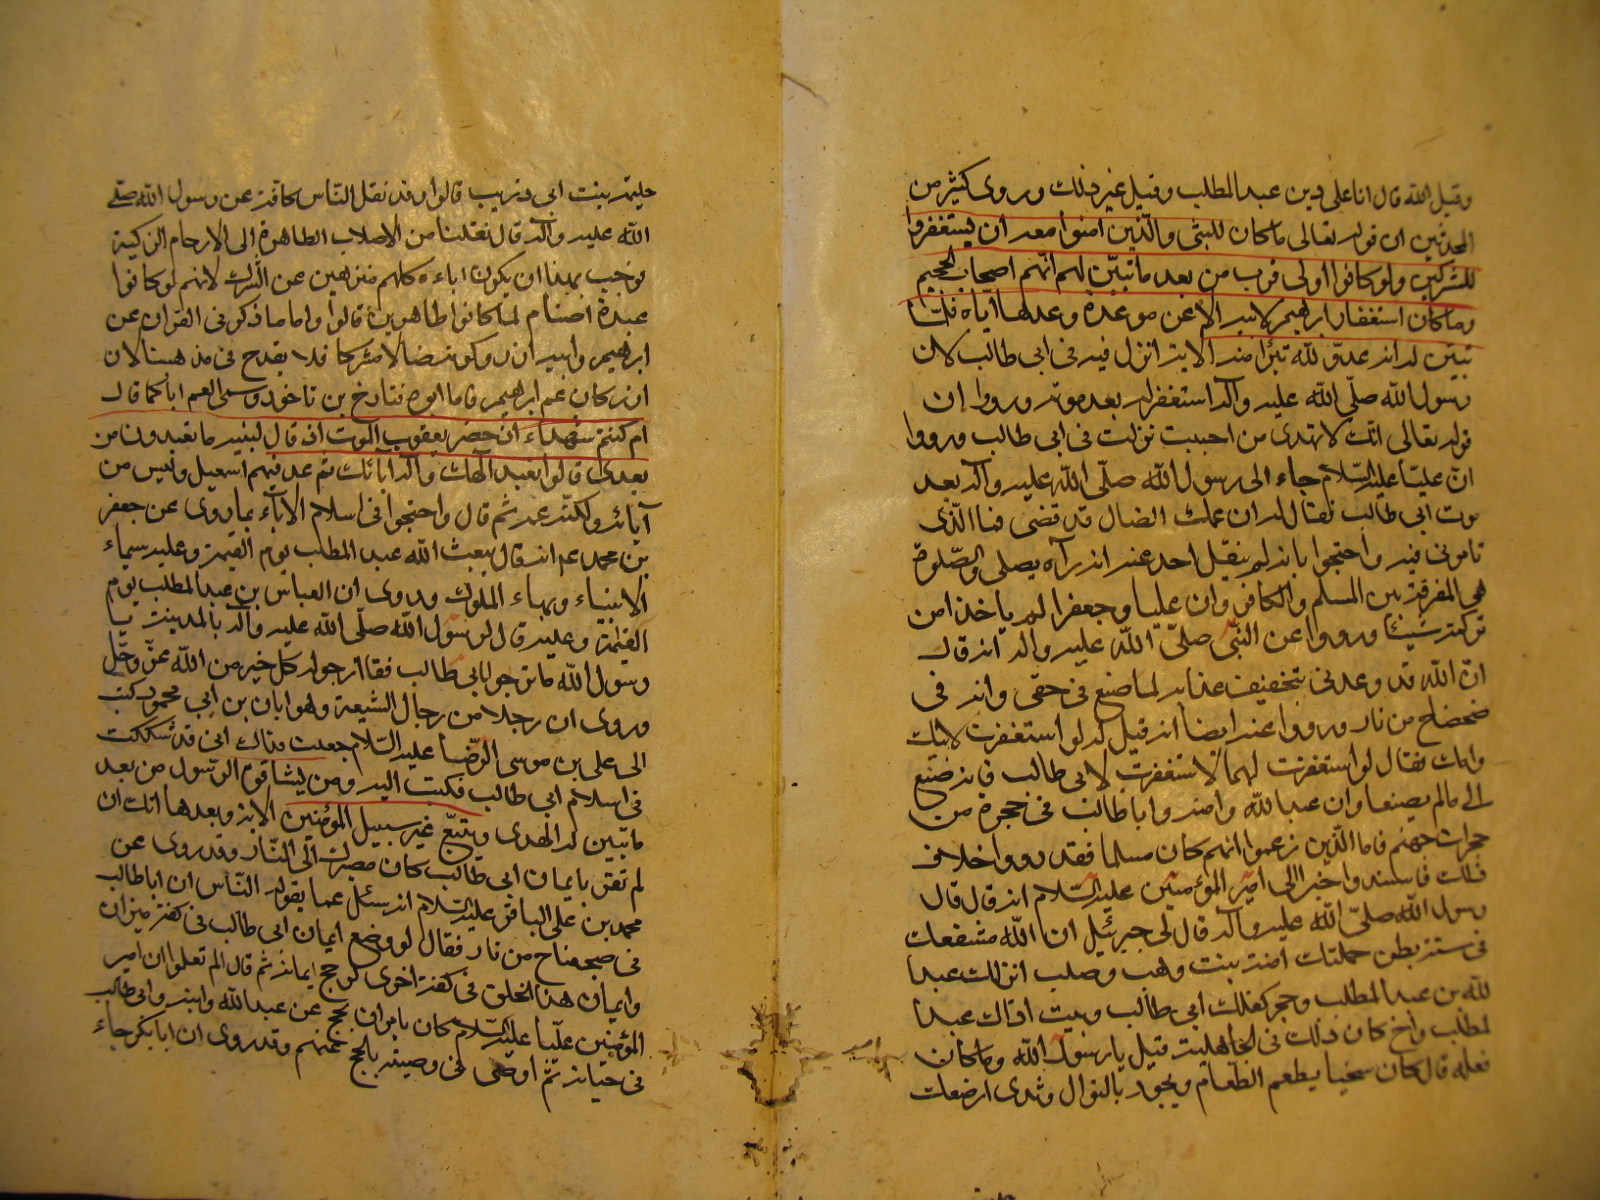 وقيل الله قال انا على دين عبد المطلب وقيل غير ذلك وروى كثير من
المحدثين ان قوله تعالى ما كان للنبي والّذين امنوا معه ان يستغفروا
للمشركين ولو كانوا اولى قربى من بعد ما تبيّن لهم انّهم اصحاب الجحيم
وما كان استغفار ابرهيم لابيه الا عن موعدة وعدها ايّاه فلمّا
تبيّن له انه عدوّ لله تبرّا منه الاية انزل فيه في ابى طالب لان
رسول الله صلّى الله عليه وآله استغفر له بعد موته ورووا ان
قوله تعالى انّك لا تهدى من احببت نزلت في ابى طالب ورووا
انّ عليّا عليه السّلام جاء الى رسول الله صلّى الله عليه وآله بعد
موت ابى طالب فقال له ان عمك الضال قد قضى فما الّذى
تامرنى فيه واحتجوا بانه لم ينقل احد عنه انه رآه يصلى والصّلوة
هى المفرقة بين المسلم والكافر وان عليا وجعفرا لم ياخذا من
تركته شيئا ورووا عن النبّى صلّى الله عليه واله انه قال
انّ الله قد وعدنى بتخفيف عذابه لما صنع في حقى وانه فى
ضحضاح من نار ورووا عنه ايضا انه قيل له لو استغفرت لابيك
وامك فقال لو استغفرت لهما لاستغفرت لابى طالب فانه صنع
الى ما لم يصنعا وان عبد الله وامنه وابا طالب فى حجرة من
حجرات جهنم فاما الّذين زعموا انهم كان مسلما فقد رووا خلاف
ذلك واسندوا خبرا الى امير المؤمنين عليه السّلام انه قال قال
رسول الله صلىّ الله عليه وآله قال لى جبرئيل ان الله مشفعك
فى ستة بطن حملتك امنة بنت وهب وصلب انزلك عبد
لله بن عبد المطلب وحجر كفلك ابى طالب وبيت اواك عبد
لمطلب واخ كان ذلك فى الجاهلية قيل يا رسول الله وما كان
فعله قال كان سخيا يطعم الطعام ويجود بالنوال وثدى ارضعك
حليمة بنت ابى ذويب قالوا وقد نقل النّاس كافة عن رسول الله صلى
الله عليه وآله قال نقلنا من الاصلاب الطاهرة الى الارحام الزكية
فوجب بهذا ان يكون اباءه كلهم منزهين عن الشّرك لانهم لو كانوا
عبدة اصنام لما كانوا طاهرين قالوا واما ما ذكر فى القران عن
ابرهيم وابيه ازر وكونه ضالا مشركا فلا يقدح فى مذهبنا لان
ازر كان عم ابرهيم فاما ابوه فتارخ بن ناخور وسمى العم ابا كما قال
ام كنتم شهداء اذ حضر يعقوب الموت اذ قال لبنيه ما تعبدون من
بعدى قالوا نعبد الهك واله آبائك ثم عد فيهم اسمعيل وليس من
آبائه ولكنّه عمه ثم قال واحتجوا فى اسلام الاباء بما روى عن جعفر
بن محمد ع انه قال يبعث الله عبد المطلب يوم القيمة وعليه سيماء
الانبياء وبهاء الملوك وروى ان العباس بن عبد المطلب يوم
القيامة وعليه قال لرسول الله صلّى الله عليه وآله بالمدينة يا
رسول الله ما ترجو لابى طالب فقال ارجو له كل خير من الله عزّ وجّل
وروى ان رجلا من رجال الشيعة وهو ابان بن ابى محمود كتب
الى على بن موسى الرّضا عليه السّلام جعلت فداك انى قد شككت
فى اسلام ابى طالب فكتب اليه ومن يشاقق الرّسول من بعد
ما تبين له الهدى ويتبع غير سبيل المؤمنين الاية وبعدها انك ان
لم تقر بايمان ابى طالب كان مصيرك الى النّار وقد روى عن
محمد بن على الباقر عليه السّلام انه سئل عما يقوله النّاس ان ابا طالب
فى ضحضاح من نار فقال لو وضع ايمان ابى طالب فى كفة ميزان
وايمان هذا الخلق فى كفة اخرى لرجح ايمانه ثم قال الم تعلوا ان امير
المؤمنين عليّا عليه السّلام كان يامر ان يحج عن عبد الله وابنه وابى طالب
فى حياته ثم اوصى فى وصيته بالحج عنهم وقد روى ان ابا بكر جاء